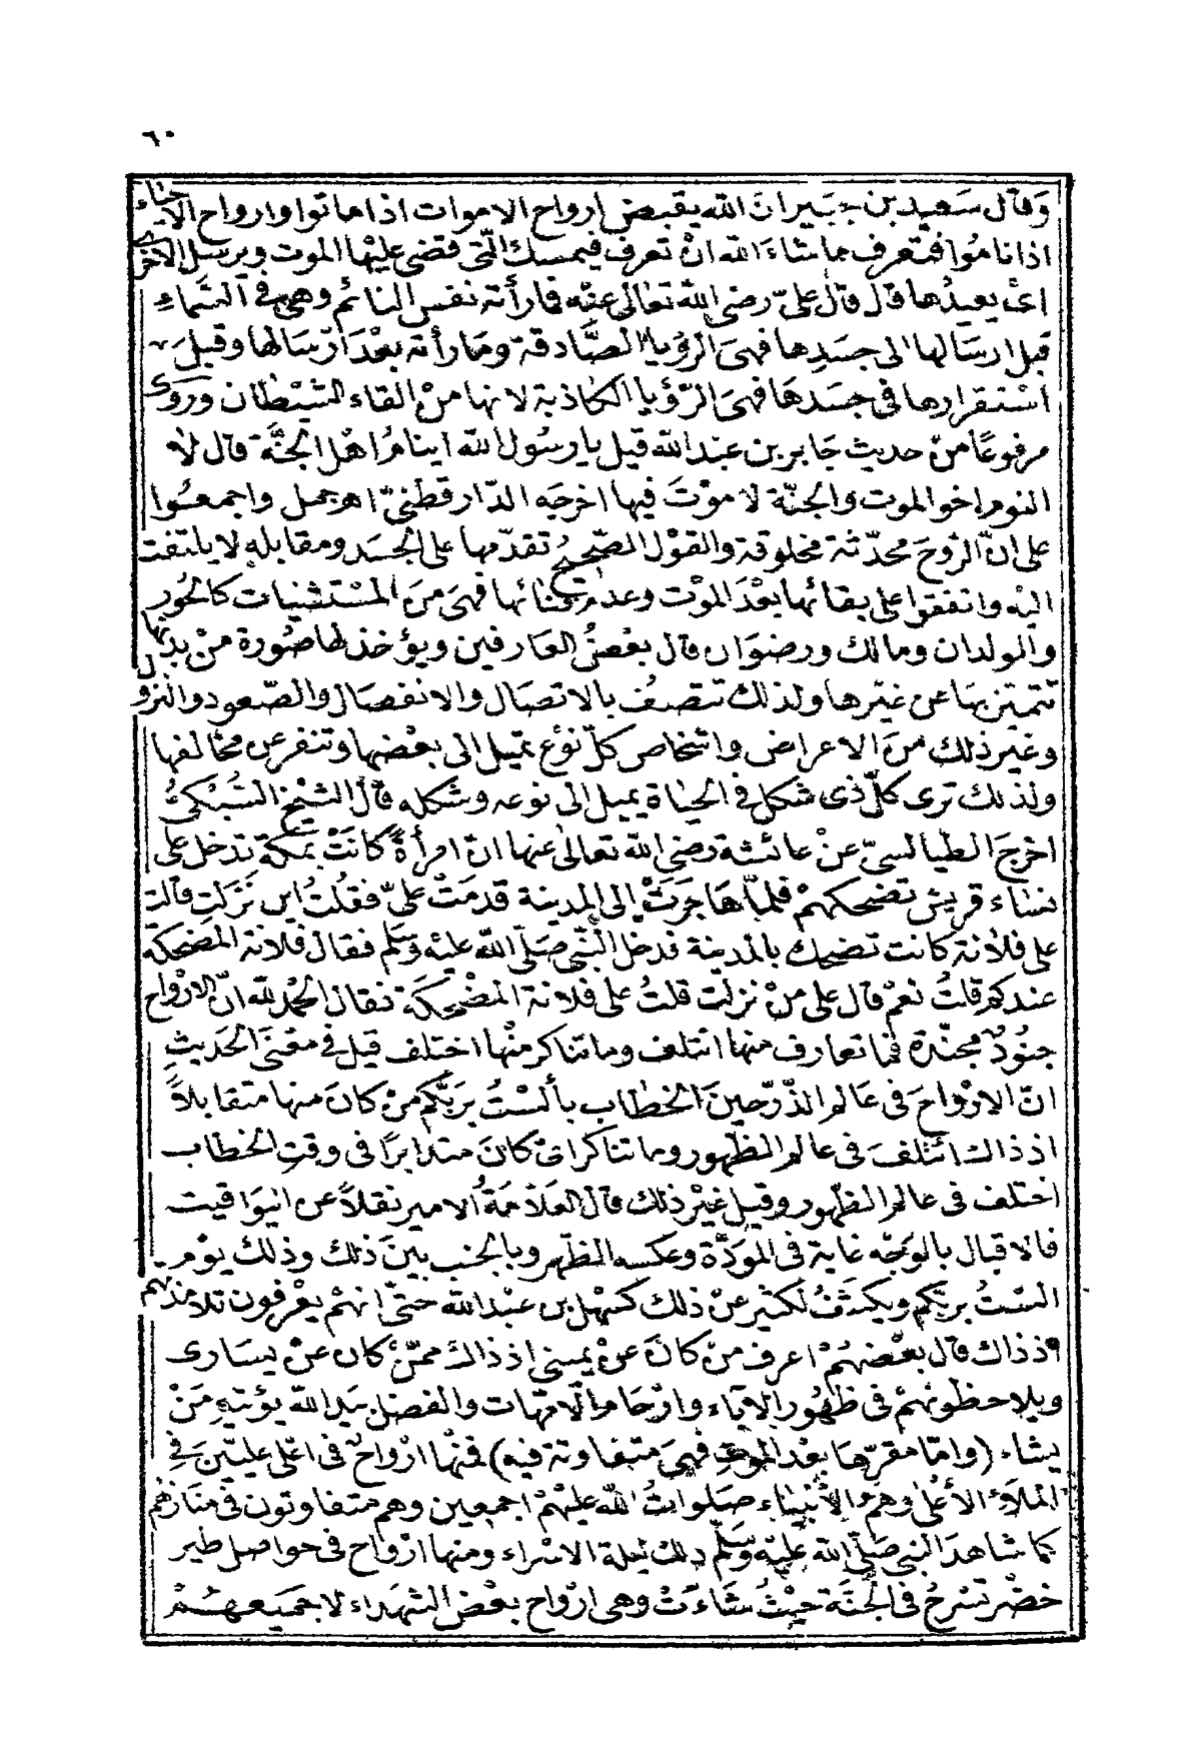 ٦٠
وقال سعيد بن جبير ان الله يقبض ارواح الاموات اذا ماتوا وارواح الاحياء
اذا ناموا فتتعرف ما شاء الله ان تعرف فيمسك التى قضى عليها الموت ويرسل الاخرى
اى يعيدها قال قال علىّ رضى الله تعالى عنه فما رأته نفس النائم وهى فى السماء
قبل ارسالها الى جسدها فهى الرؤيا الصّادقة وما رأته بعد ارسالها وقبل
استقرارها فى جسدها فهى الرّؤيا الكاذبة لانها من القاء الشيطان وروى
مرفوعًا من حديث جابر بن عبد الله قيل يا رسول الله اينام اهل الجنّة قال لا
النوم اخو الموت والجنّة لا موت فيها اخرجه الدّارقطنىّ اهـ جمل واجمعوا
على انّ الرّوح محدثة مخلوقة والقول الصّحيح تقدّمها على الجسد ومقابله لا يلتفت
اليه واتفقوا على بقائها بعد الموت وعدم فنائها فهى من المستثنيات كالحور
والولدان ومالك ورضوان قال بعض العارفين ويؤخذ لها صورة من بدنها
تتميّز بها عن غيرها ولذلك تتصف بالاتصال والانفصال والصّعود والنزول
وغير ذلك من الاعراض واشخاص كلّ نوع تميل الى بعضها وتنفر عن مخالفها
ولذلك ترى كلّ ذى شكل فى الحياة يميل الى نوعه وشكله قال الشيخ السّبكىّ
اخرج الطيالسىّ عن عائشة رضى الله تعالى عنها ان امرأة كانت بمكة تدخل على
نساء قريش تضحكهم فلما هاجرت الى المدينة قدمت علىّ فقلت اين نزلت قالت
على فلانة كانت تضحك بالمدينة فدخل النّبى صلّى الله عليه وسلّم فقال فلانة المضحكة
عندكم قلت نعم قال على من نزلت قلت على فلانة المضحكة فقال الحمد لله انّ الارواح
جنود مجنّدة فما تعارف منها ائتلف وما تناكر منها اختلف قيل فى معنى الحديث
انّ الارواح فى عالم الذّرّ حين الخطاب بألست بربّكم من كان منها متقابلاً
اذ ذاك ائتلف فى عالم الظّهور وما تناكر اى كان متدابرًا فى وقت الخطاب
اختلف فى عالم الظّهور وقيل غير ذلك قال العلّامة الامير نقلاً عن اليواقيت
فالاقبال بالوجه غاية فى المودّة وعكسه الظّهر وبالجنب بين ذلك وذلك يوم
الست بربّكم ويكشف لكثير عن ذلك كسهل بن عبد الله حتّى انهم يعرفون تلامذتهم
اذ ذاك قال بعضهم اعرف من كان عن يمينى اذ ذاك ممّن كان عن يسارى
ويلاحظونهم فى ظهور الآباء وارحام الامّهات والفضل بيد الله يؤتيه من
يشاء (وامّا مقرّها بعد الموت فهى متفاوتة فيه) فمنها ارواح فى اعلى عليّين فى
الملاء الأعلى وهم الأنبياء صلوات الله عليهم اجمعين وهم متفاوتون فى منازلهم
كما شاهد النبى صلّى الله عليه وسلّم ذلك ليلة الاسراء ومنها ارواح فى حواصل طير
خضر تسرح فى الجنّة حيث شاءت وهى ارواح بعض الشهداء لا جميعهم